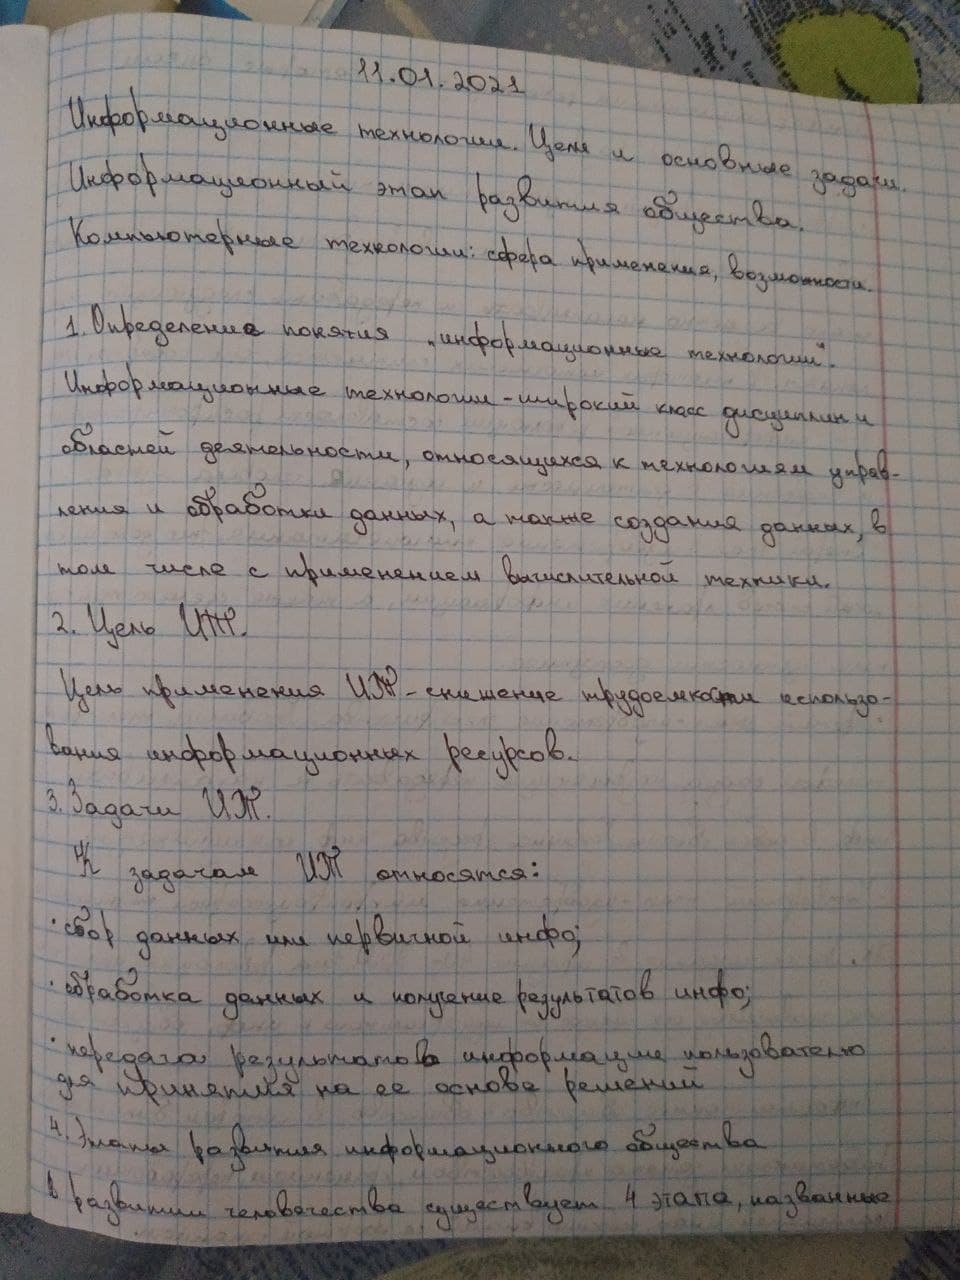 11.01.2021
Информационные технологии. Цели и основные задачи.
Информационный этап развития общества.
Компьютерные технологии: сфера применения, возможности.
1. Определение понятия „информационные технологии“.
Информационные технологии - широкий класс дисциплин и
областей деятельности, относящихся к технологиям управ-
ления и обработки данных, а также создания данных, в
том числе с применением вычислительной техники.
2. Цель ИТ.
Цель применения ИТ - снижение трудоемкости использо-
вания информационных ресурсов.
3. Задачи ИТ.
К задачам ИТ относятся:
· сбор данных или первичной инфо;
· обработка данных и получение результатов инфо;
· передача результатов информации пользователю
для принятия на ее основе решений
4. Этапы развития информационного общества
В развитии человечества существует 4 этапа, названные